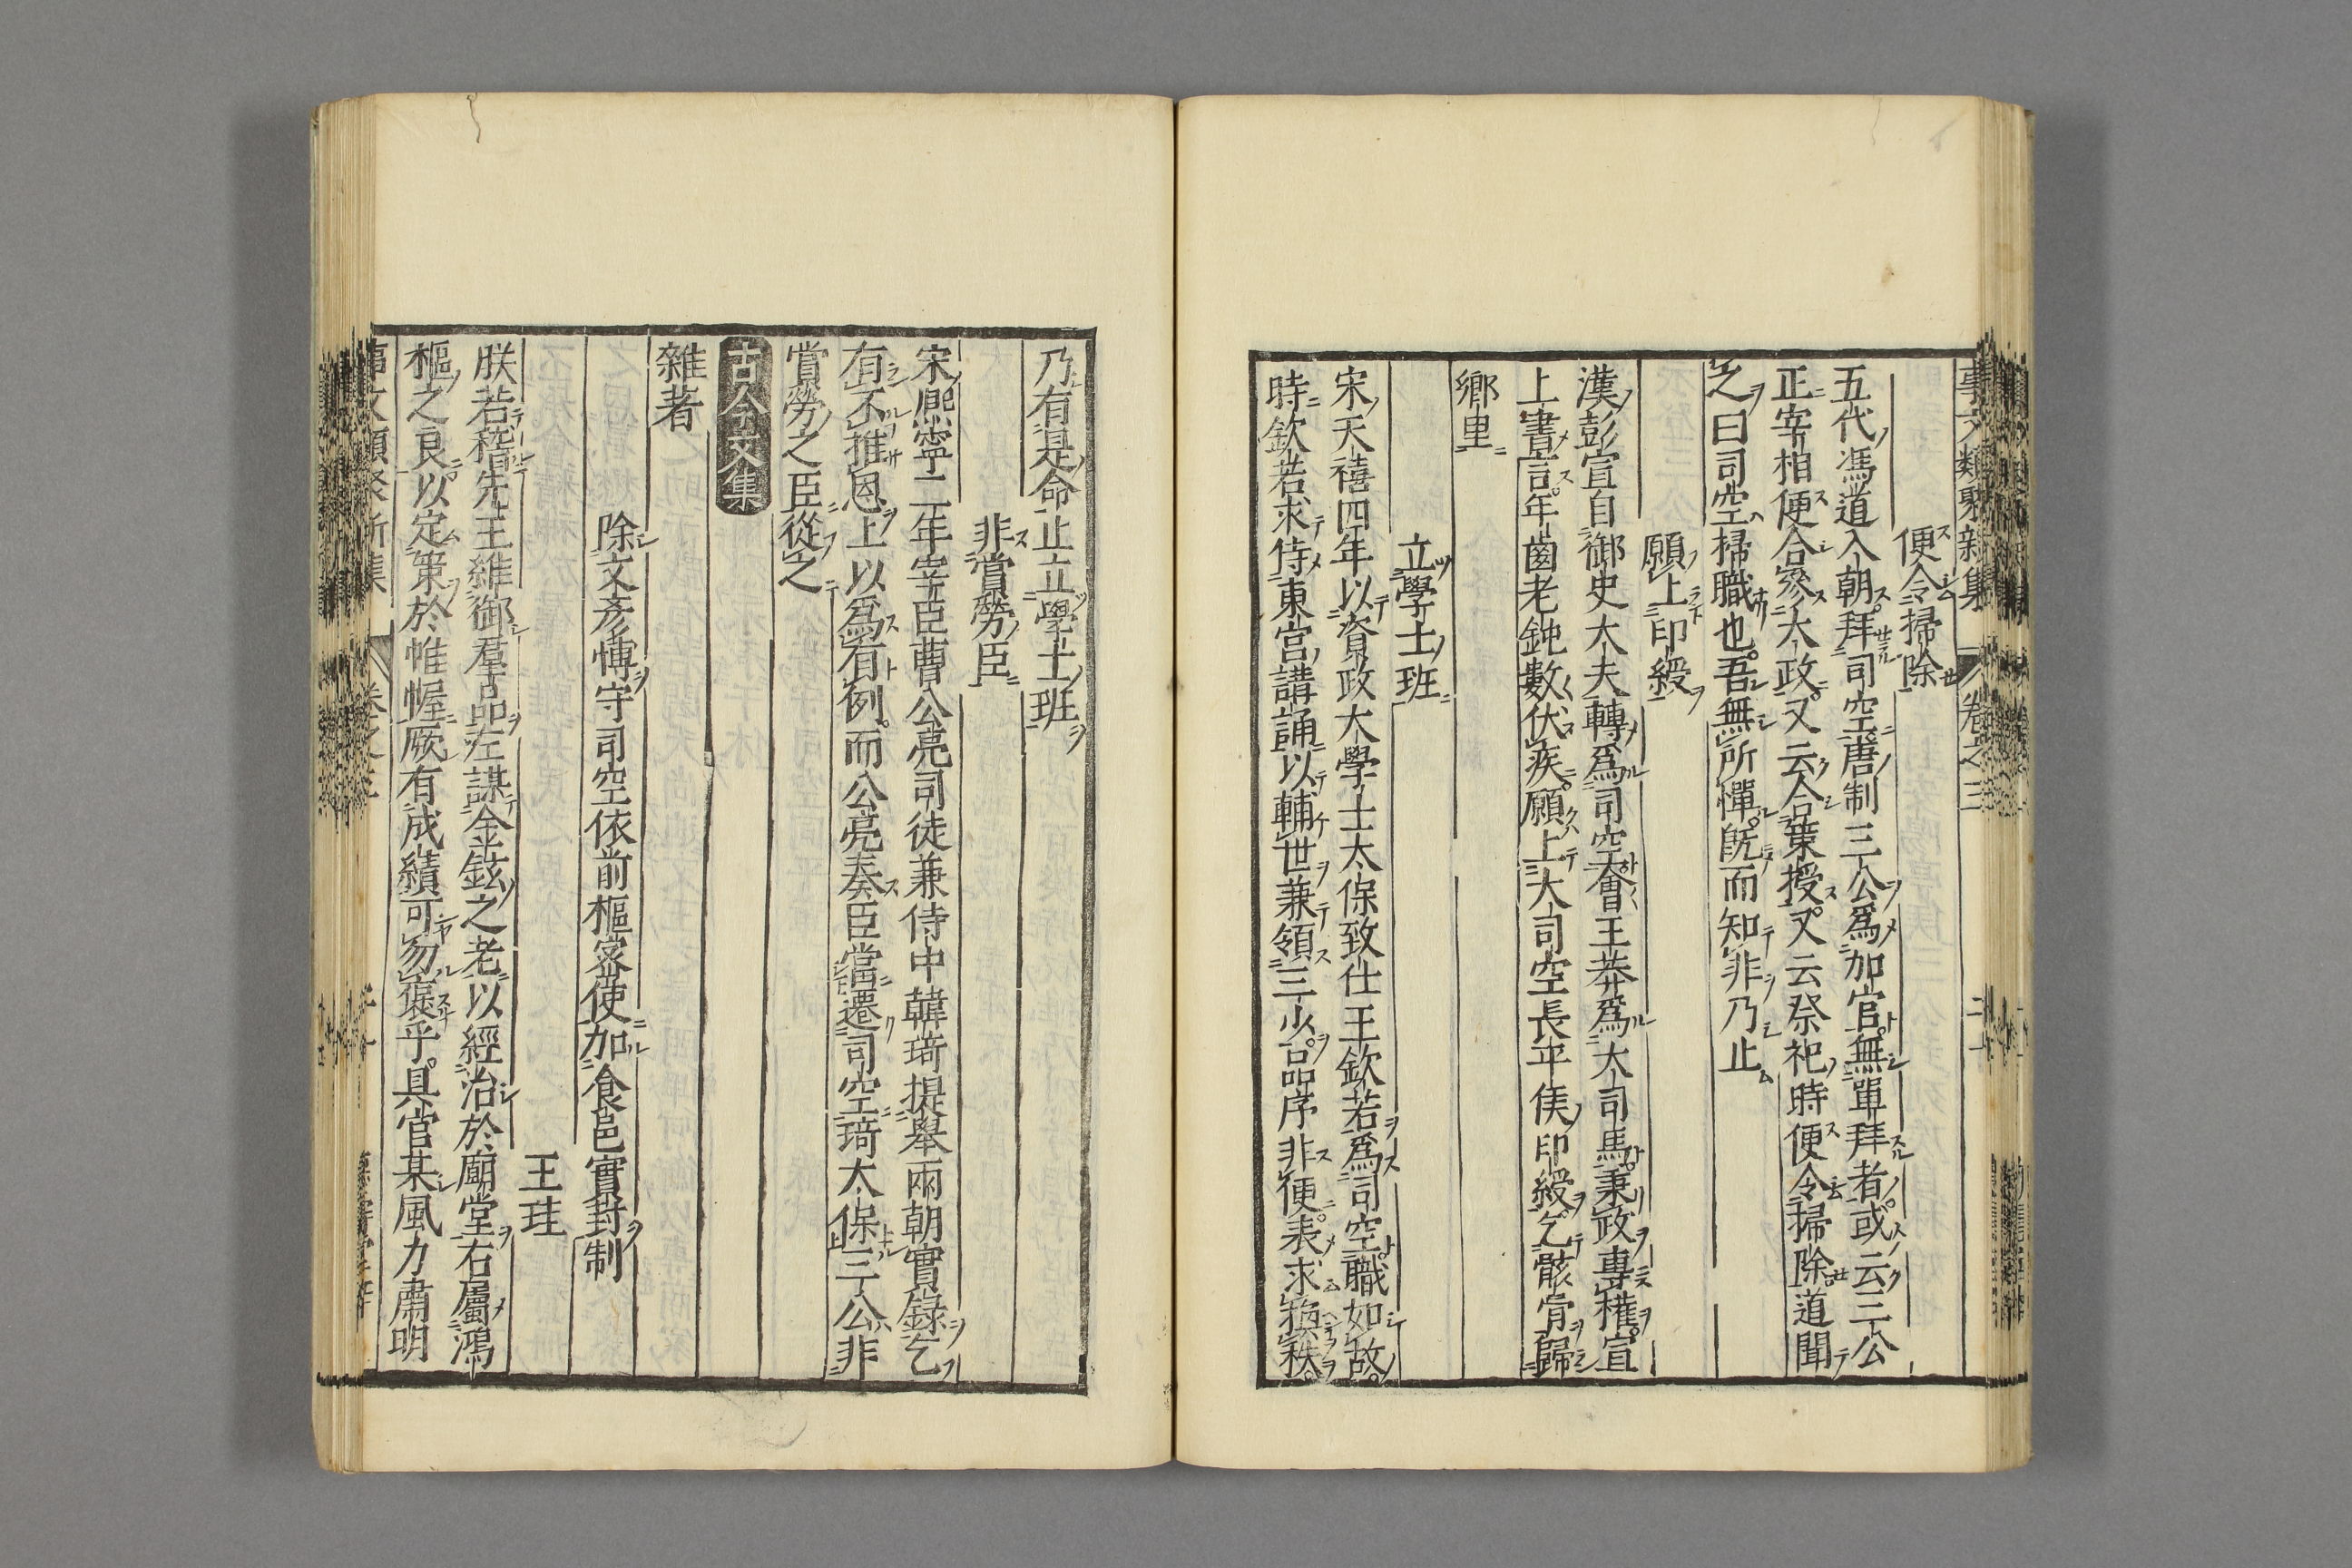 事文類聚新集 卷之三
便令掃除
五代馮道入朝拜司空唐制三公爲加官無單拜者或云三公
正宰相便合參大政又云合葉授又云祭祀時便令掃除道聞
之曰司空掃職也吾無所憚旣而知非乃止
願上印綬
漢彭宣自御史大夫轉爲司空會王莽爲大司馬秉政專權宣
上書言年齒老鈍數伏疾願上大司空長平侯印綬乞骸骨歸
鄉里
立學士班
宋天禧四年以資政大學士太保致仕王欽若爲司空職如故
時欽若求侍東宮講誦以輔世兼領三少品序非便表求換秩
乃有是命止立學士班
非賞勞臣
宋熈寧二年宰臣曹公亮司徒兼侍中韓琦提舉兩朝實錄乞
有不推恩上以爲有例而公亮奏臣當遷司空琦太保三公非
賞勞之臣從之
古今文集
雜著
除文彥博守司空依前樞密使加食邑實封制
王珪
朕若稽先王維御羣品左謀金鉉之老以經治於廟堂右屬鴻
樞之良以定策於帷幄厥有成績可勿褒乎具官某風力肅明